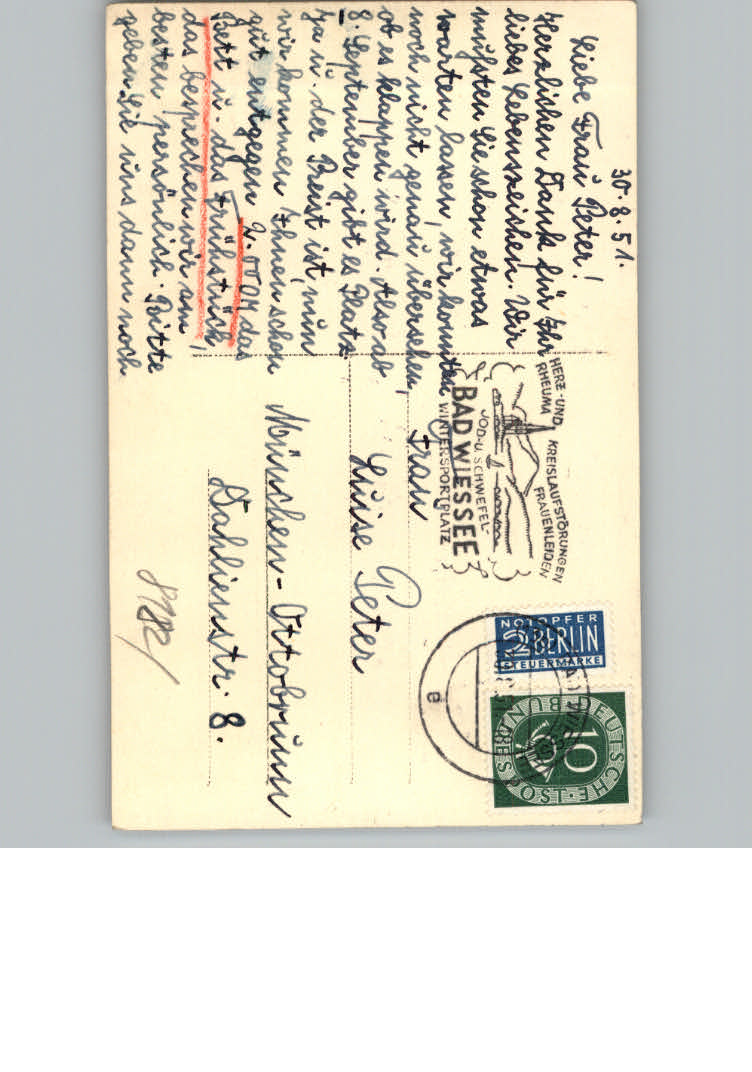 30.8.51.
Liebe Frau Peter!
Herzlichen Dank für Ihr
liebes Lebenszeichen. Wir
mußten Sie schon etwas
warten lassen, wir konnten
noch nicht genau übersehen,
ob es klappen wird. Also ab
8. September gibt es Platz
ja u. der Preist ist, nun
wir kommen Ihnen schon
gut entgegen 2.- DM das
Bett u. das Frühstück,
das besprechen wir am
besten persönlich. Bitte
geben Sie uns dann noch
HERZ- UND KREISLAUFSTÖRUNGEN
RHEUMA FRAUENLEIDEN
JOD- U. SCHWEFEL-
BAD WIESSEE
WINTERSPORTPLATZ
NOTOPFER
2 BERLIN
STEUERMARKE
DEUTSCHE BUNDESPOST
10
e
Frau
Luise Peter
München-Ottobrunn
Dahlienstr. 8.